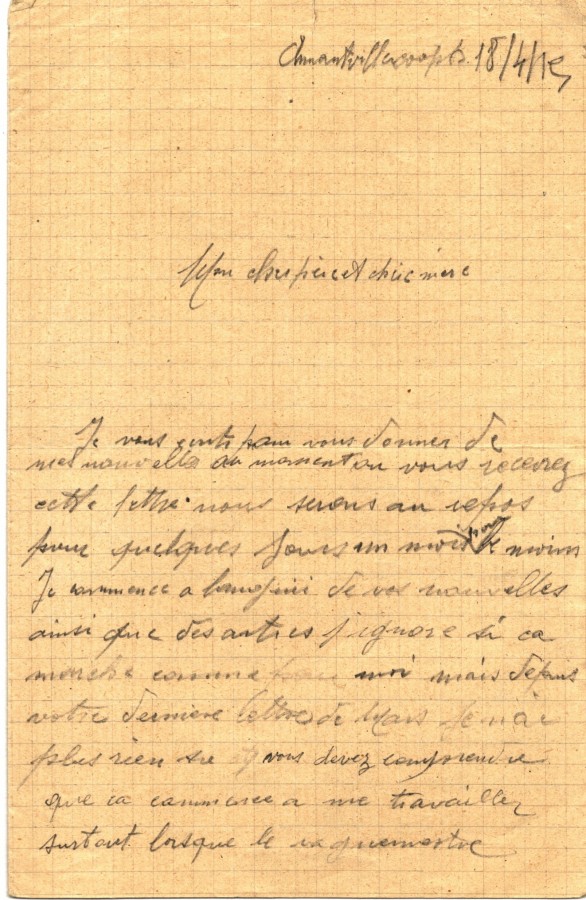 18/4/15
Mon cher père et chère mère
Je vous écrits pour vous donner de
mes nouvelles au moment ou vous recevrez
cette lettre nous serons au repos
pour quelques Jours un mois pour le moins
Je commence a languir de vos nouvelles
ainsi que des autres J'ignore si ca
marche comme pour moi mais depuis
votre derniere lettre de Mars Je n'ai
plus rien vous devez comprendre
que ca commence a me travailler
surtout lorsque le vaguemestre